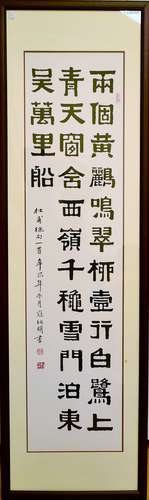 兩個黃鸝鳴翠柳壹行白鷺上
青天窗含西嶺千穐雪門泊東
吳萬里船
杜甫絕句一首